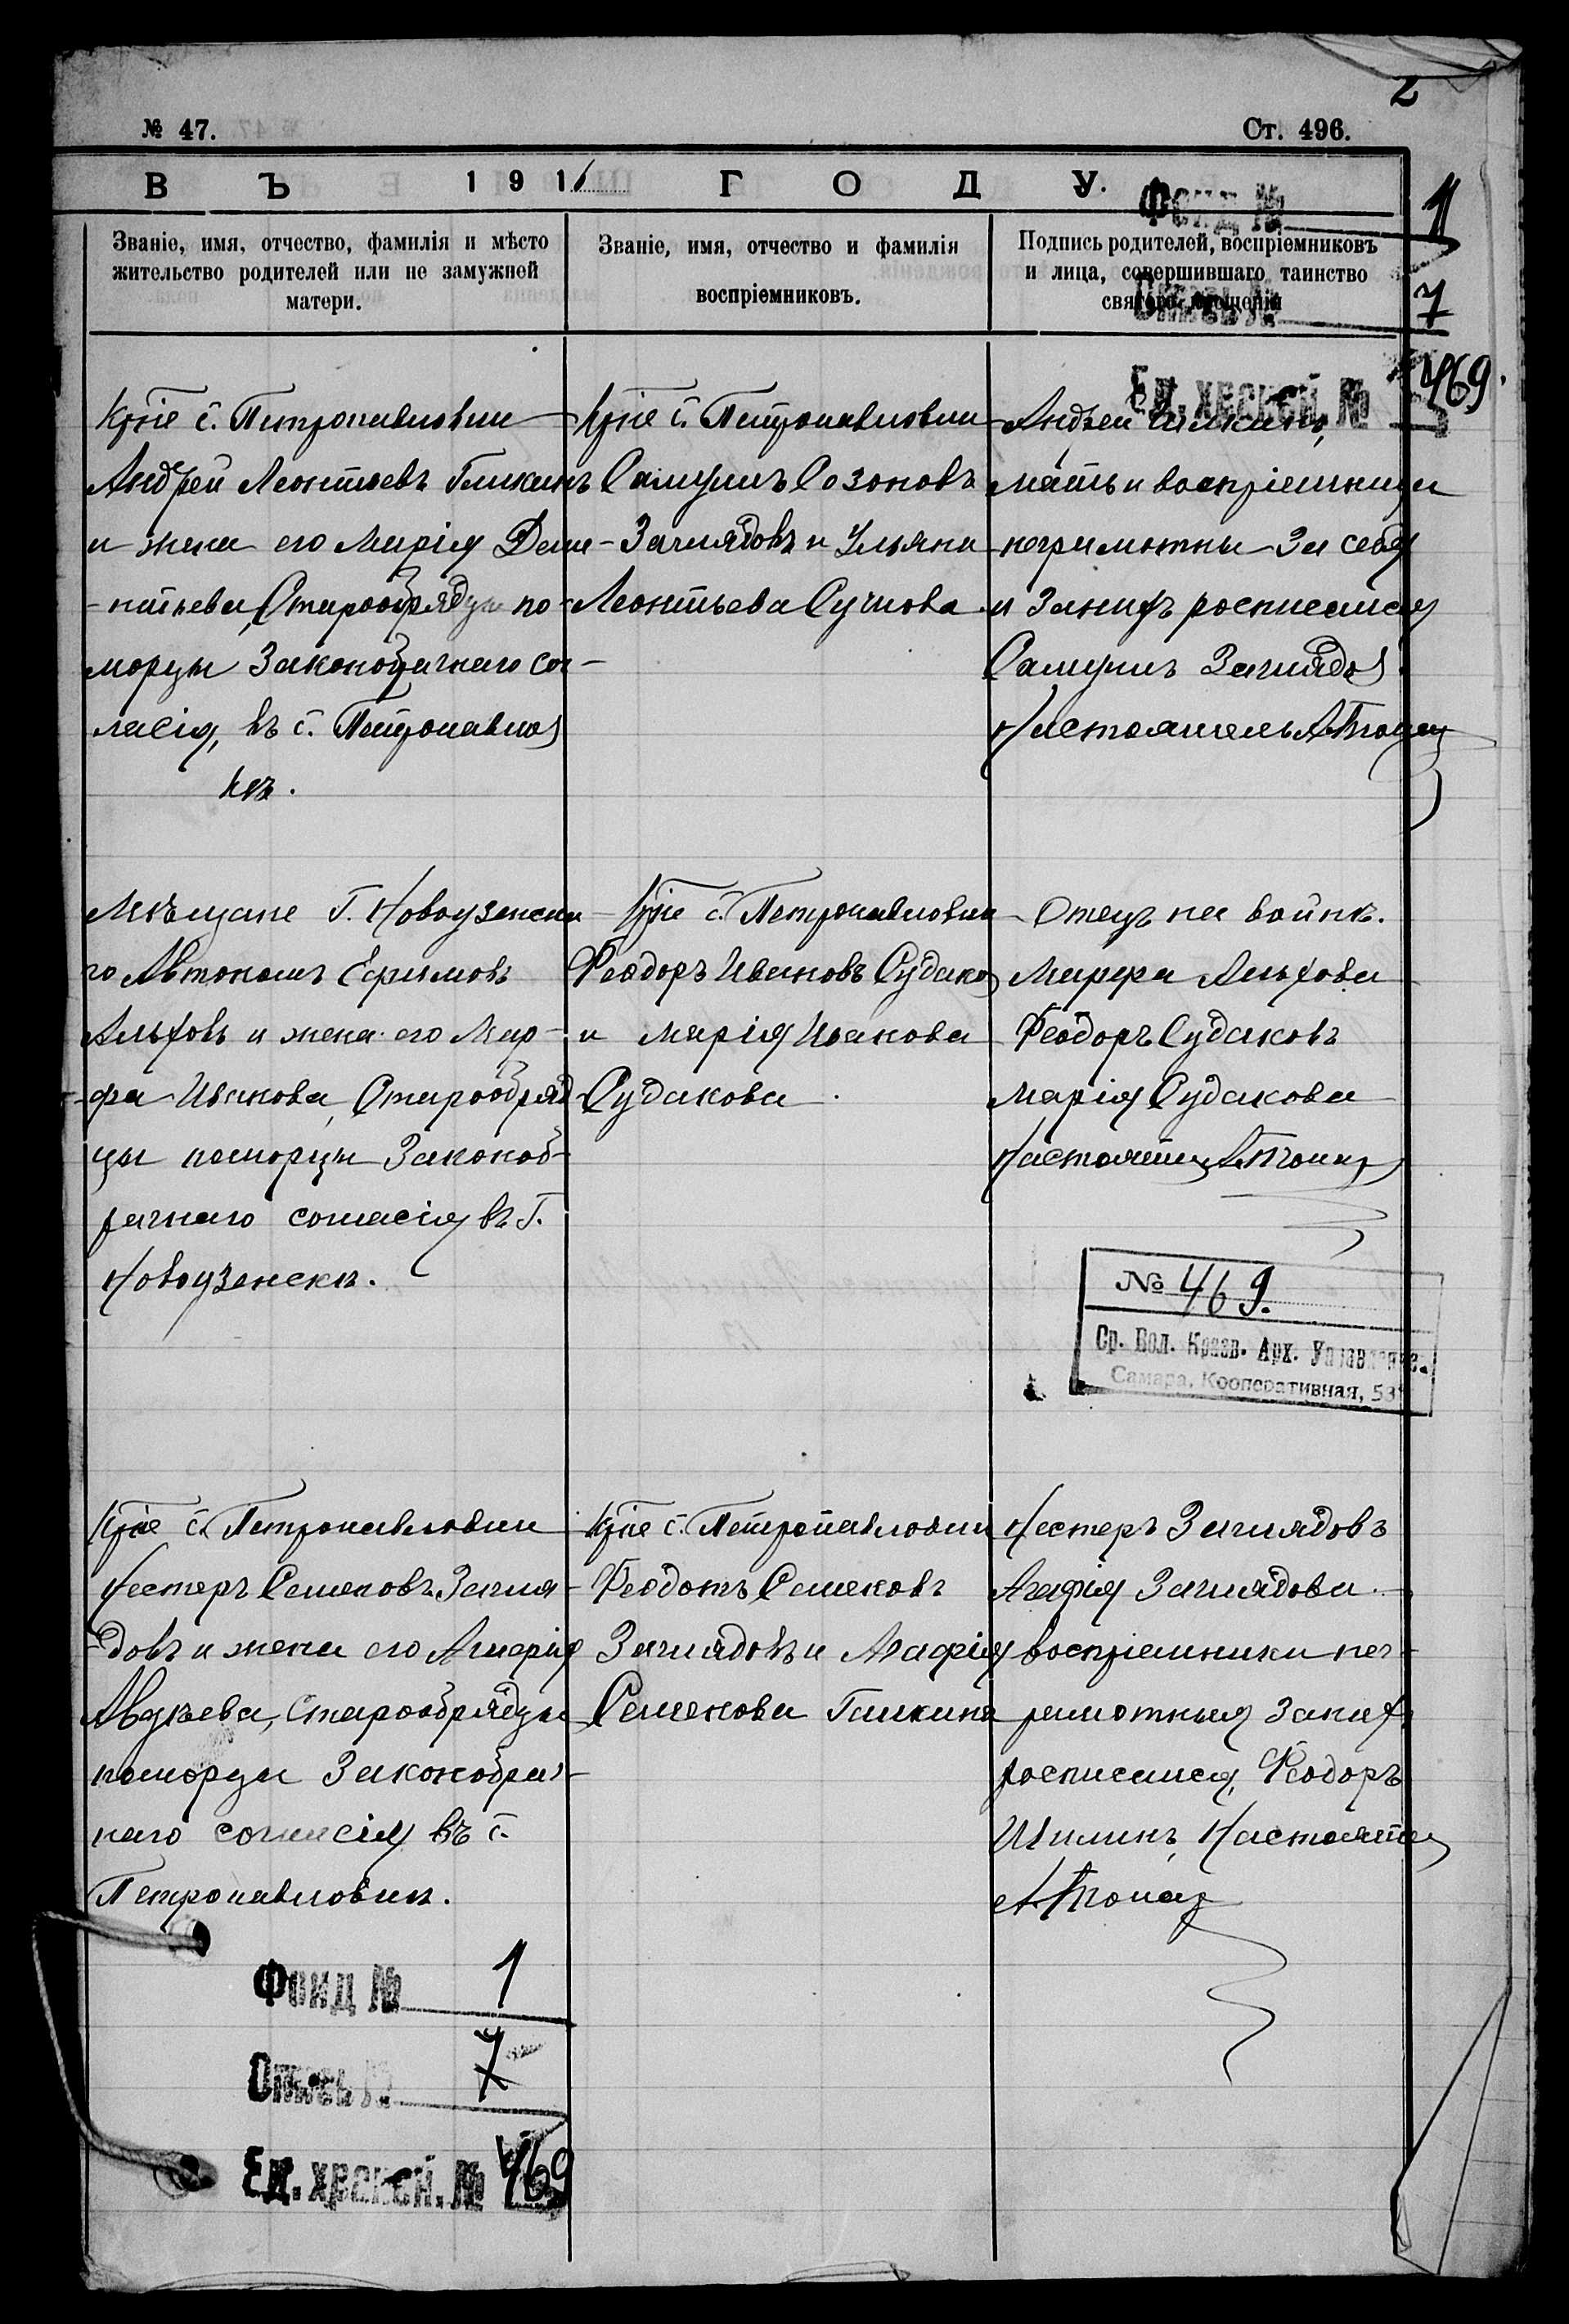 2
№ 47.
Ст. 496.
ВЪ 1916 ГОДУ.
Фонд № 1
Опись № 7
Ед. хранен. № 469.
Званіе, имя, отчество, фамилія и мѣсто
жительство родителей или не замужней
матери.
Званіе, имя, отчество и фамилія
воспріемниковъ.
Подпись родителей, воспріемниковъ
и лица, совершившаго таинство
святого крещенія
Крне с. Петропавловки
Андрей Леонтьевъ Галкинъ
и жена его Марія Деми-
-нтьева, Старообрядцы по-
морцы Законобрачнаго сог-
ласія, въ с. Петропавлов
кѣ.
Крне с. Петропавловки
Самуилъ Созоновъ
Заглядовъ и Ульяна
Леонтьева Суслова
Андрей Галкинъ,
мать и воспріемница
неграмотны За себя
и За нихъ росписался
Самуилъ Заглядов
Настоятель
Мѣщане Г. Новоузенска
го Автономъ Ефимовъ
и жена его Мар-
фа Иванова, Старообряд
цы поморцы Законоб-
рачнаго согласія въ Г.
Новоузенскѣ.
Крне с. Петропавловки
Феодоръ Ивановъ Судаков
и Марія Иванова
Судакова
Отецъ на войнѣ.
Марфа
Феодоръ Судаковъ
Марія Судакова
Настоятель
№ 469.
Ср. Вол. Краев. Арх. Управление.
Самара, Кооперативная, 53
Крне с. Петропавловки
Нестеръ Семеновъ Загля-
довъ и жена его Агафія
Авдѣева, Старообрядцы
поморцы Законобрач-
наго согласія въ с.
Петропавловкѣ.
Крне с. Петропавловки
Феодотъ Семеновъ
Заглядовъ и Агафія
Семенова Галкина
Нестеръ Заглядовъ
Агафія Заглядова
воспріемники нег-
рамотныя За них
росписался, Феодоръ
Шилинъ, Настоятель
Фонд № 1
Опись № 7
Ед. хранен. № 469